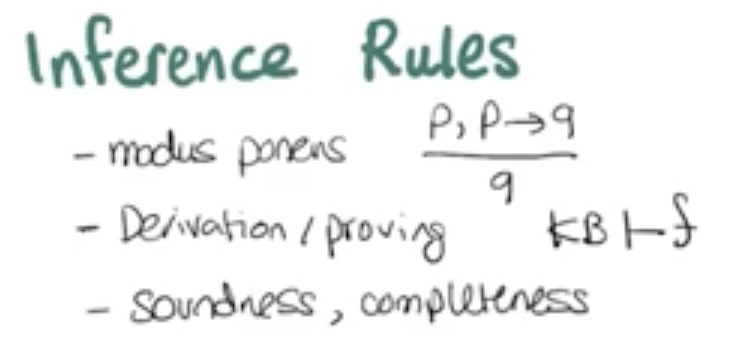 Inference Rules
- modus ponens p, p→q
q
- Derivation / proving KB ⊢ f
- soundness, completeness